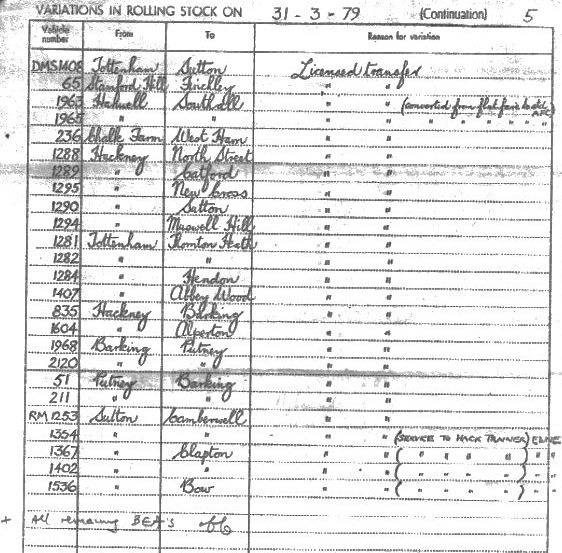 VARIATIONS IN ROLLING STOCK ON 31 - 3 - 79 (Continuation) 5
Vehicle number From To Reason for variation
DMS1408 Tottenham Sutton Licensed transfer
65 Stamford Hill Finchley " "
1963 Hanwell Southall " " (converted from flat fare to dbl AFC)
1965 " " " " " " " " " "
236 Chalk Farm West Ham " "
1288 Hackney North Street " "
1289 " Catford " "
1295 " New Cross " "
1290 " Sutton " "
1294 " Muswell Hill " "
1281 Tottenham Thornton Heath " "
1282 " " " "
1284 " Hendon " "
1407 " Abbey Wood " "
835 Hackney Barking " "
1604 " Alperton " "
1968 Barking Putney " "
2120 " " " "
51 Putney Barking " "
211 " " " "
RM 1253 Sutton Camberwell " "
1354 " " " " (SERVICE TO HACK TRAINER)
1367 " Clapton " " ( " " " " ) " "
1402 " " " " ( " " " " ) " "
1536 " Bow " " ( " " " " ) " "
+ All remaining BEA's